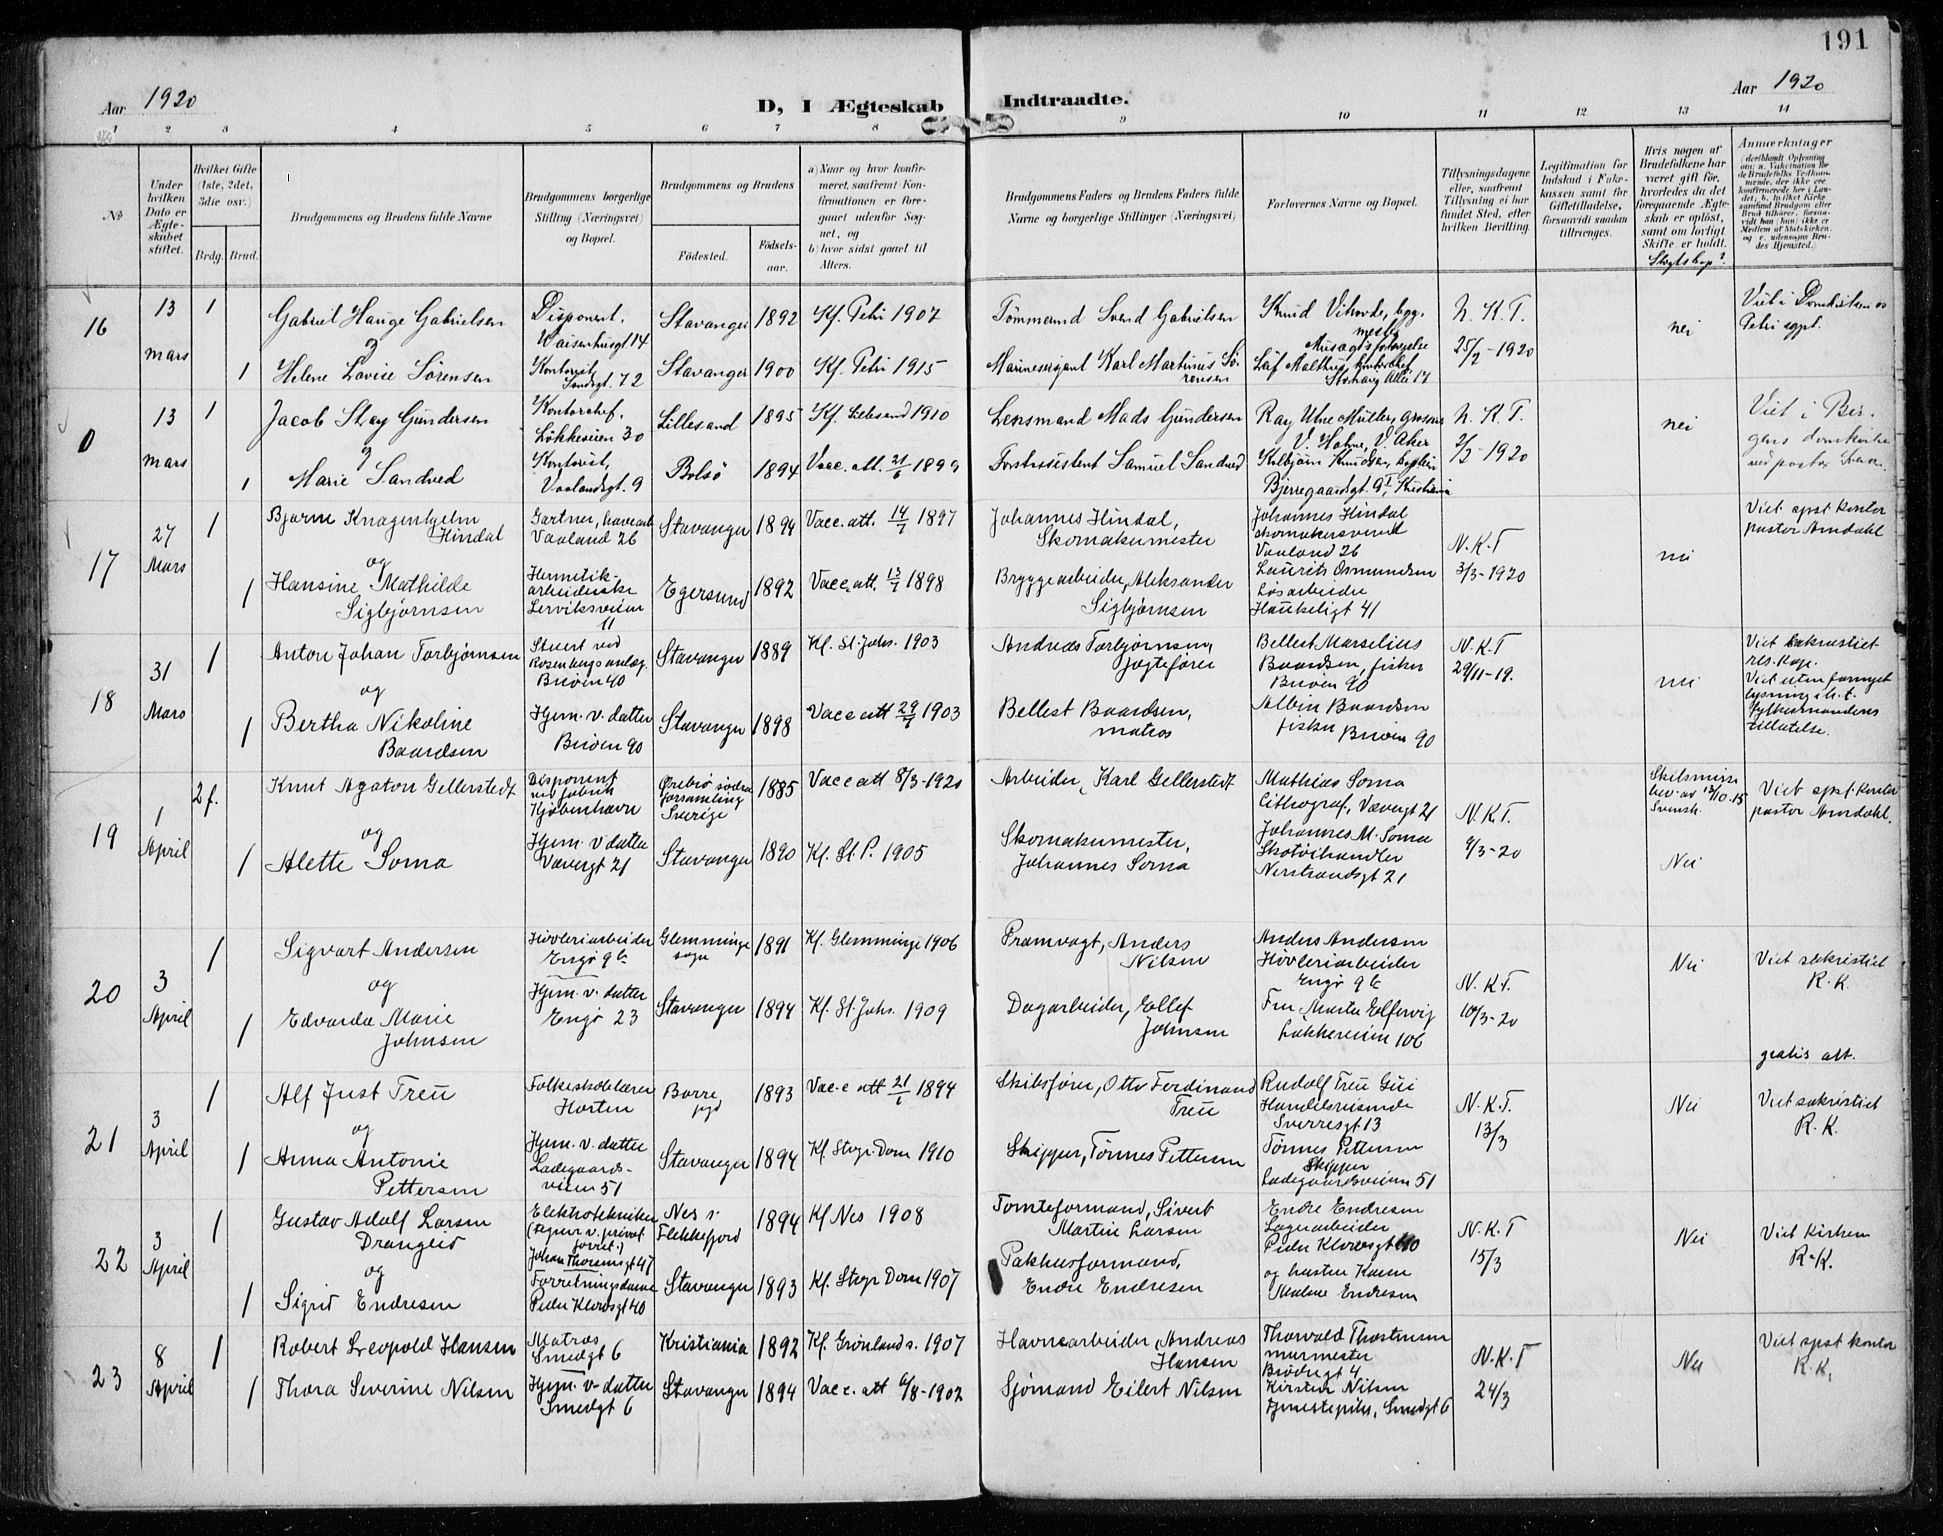 191
Aar 1920
D, I Ægteskab Indtraadte.
Aar 1920
1 2 3 4 5 6 7 8 9 10 11 12 13 14
No
Under hvilken Dato er Ægteskabet stiftet.
Hvilket Gifte (1ste, 2det, 3die osv.)
Brdg. Brud.
Brudgommens og Brudens fulde Navne
Brudgommens borgerlige Stilling (Næringsvei) og Bopæl.
Brudgommens og Brudens
Fødested.
Fødselsaar.
a) Naar og hvor konfirmeret, saafremt Konfirmationen er foregaaet udenfor Sognet, og
b) hvor sidst gaaet til Alters.
Brudgommens Faders og Brudens Faders fulde Navne og borgerlige Stillinger (Næringsvei)
Forlovernes Navne og Bopæl.
Tillysningsdagene eller, saafremt Tillysning ei har fundet Sted, efter hvilken Bevilling.
Legitimation for Indskud i Enkekassen samt for Giftetilladelse, forsaavidt saadan tiltrænges.
Hvis nogen af Brudefolkene har været gift før, hvorledes da det foregaaende Ægteskab er opløst, samt om lovligt Skifte er holdt.
Slegtskap?
Anmerkninger
16
13 mars
1
Gabriel Hauge Gabrielsen
Disponent.
Waisenhusgt. 14
Stavanger 1892 Kf. Petri 1907
Tømmermand Svend Gabrielsen
N. K. T.
25/2 - 1920
nei
og
1
Helene Lovise Sørensen
Kontorist,
Sandsgt. 72
Stavanger 1900 Kf. Petri 1915
Marinesergiant Karl Martinus Sørensen
0
13 mars
1
Jacob Stay Gundersen
Kontorchef.
Løkkeveien 30
Lillesand 1895 Kf. Lillesand 1910
Lensmand Mads Gundersen
N. K. T.
2/3 - 1920
nei
Viet i Bergens domkirke
og
1
Marie Sandved
Kontorist,
Vaalandsgt. 9
Bolsø 1894
Forstassistent Samuel Sandved
Bjerregaardsgt. 9I, Kristiania
17
27 Mars
1
Bjarne Knagenhjelm Hindal
Gartner, havearb
Vaaland 26
Stavanger 1894 Vacc. att. 14/7 1897
Johannes Hindal,
Skomakermester
Johannes Hindal
skomakersvend
Vaaland 26
N. K. T
3/3 - 1920
nei
Viet spst. kontor
pastor Arndahl
og
1
Hansine Mathilde Sigbjørnsen
Hermetikarbeiderske
Lerviksveien 11
Egersund 1892 Vacc. att. 13/7 1898
Bryggearbeider, Aleksander Sigbjørnsen
Laurits Osmundsen
Løsarbeider
Haukeligt 41
18
31 Mars
1
Anton Johan Torbjørnsen
Stuert ved
Rosenbergs anlæg.
Buøen 90
Stavanger 1889 Kf. St. Johs. 1903
Andreas Torbjørnsen,
Jægtefører
Bellest Marselius
Baardsen, fisker
Buøen 90
N. K. T
29/11 - 19.
nei
Viet sakrastiet
res. kap.
Viet uten fornyet
lysning i h. t.
fylkesmandens
tillatelse.
og
1
Bertha Nikoline Baardsen
Hjem. v. datter
Buøen 90
Stavanger 1898 Vacc att 29/7 1903
Bellest Baardsen,
matros
Albin Baardsen
fisker Buøen 90
19
1 April
2 f.
Knut Agaton Gellerstedt
Disponent
ved fabrik
Kjøbenhavn
Örebrö södra
forsamling
Sverige
1885 Vacc att 8/3 - 1920
Arbeider, Karl Gellerstedt
Mathias Soma
Lithograf, Vævergt 21
N. K. T.
9/3 - 20
Skilsmisse
bev. av 13/10 - 15
Svensk.
Viet spst. kontor
pastor Arndahl.
og
1
Alette Soma
Hjem. v datter
Vævergt 21
Stavanger 1890 Kf. St. P. 1905
Skomakermester,
Johannes Soma
Johannes M. Soma
Skotøihandler
Nerstrandsgt 21
Nei
20
3 April
1
Sigvart Andersen
Høvleriarbeider
Engø 9b
Glemminge
sogn
1891 Kf. Glemminge 1906
Pramvagt, Anders Nilsen
Anders Andersen
Høvleriarbeider
Engø 9b
N. K. T.
10/3 - 20
Nei
Viet sakristiet
R. K.
og
1
Edvarda Marie Johnsen
Hjem. v. datter
Engø 23
Stavanger 1894 Kf. St. Johs. 1909
Dagarbeider, Ellef Johnsen
Løkkeveien 106
gratis att.
21
3 April
1
Alf Just Treu
Folkeskolelærer
Horten
Borre
1893 Vacc att 21/6 1894
Skibsfører, Otto Ferdinand Treu
Rudolf Treu Gui
Handelsreisende
Sverresgt 13
N. K. T.
13/3
Nei
Viet sakristiet
R. K.
og
1
Anna Antonie Pettersen
Hjem. v. datter
Ladegaardsveien 51
Stavanger 1894 Kf. Stvgr. Dom 1910
Skipper, Tønnes Pettersen
Tønnes Pettersen
Skipper
Ladegaardsveien 51
22
3 April
1
Gustav Adolf Larsen Drangeid
Elektrotekniker
(tegner v. privat
forret.)
Johan Thorsensgt 47
Nes i
Flekkefjord
1894 Kf Nes 1908
Tomteformand, Sivert
Martin Larsen
Endre Endresen
Lagerarbeider
Peder Klowsgt 40
N. K. T
15/3
Nei
Viet kirken
R. K.
og
1
Sigrid Endresen
Forretningsdame
Peder Klowsgt 40
Stavanger 1893 Kf. Stvgr Dom 1907
Pakhusformand,
Endre Endresen
og hustru Karen
Malene Endresen
23
8 April
1
Robert Leopold Hansen
Matros
Smedgt 6
Kristiania 1892 Kf. Grønlands. 1907
Havnearbeider, Andreas Hansen
Thorvald Thostensen
murmester
Brødregt 4
N. K. T
24/3
Nei
Viet spst kontor
R. K.
1
Thora Severine Nilsen
Hjem. v. datter
Smedgt 6
Stavanger 1894 Vacc. att 6/8 - 1902
Sjømand Eilert Nilsen
Kirsten Nilsen
tjenestepike, Smedgt 6